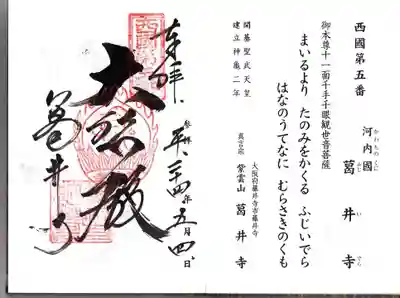 西國第五番
かわちのくに
河内國
ふじ い でら
葛井寺
御本尊十一面千手千眼観世音菩薩
まいるより たのみをかくる ふじいでら
はなのうてなに むらさきのくも
開基聖武天皇
建立神亀二年
大阪府藤井寺市藤井寺
真言宗 紫雲山 葛井寺
奉拝
参拝 平二四年五月四日
大悲殿
葛井寺